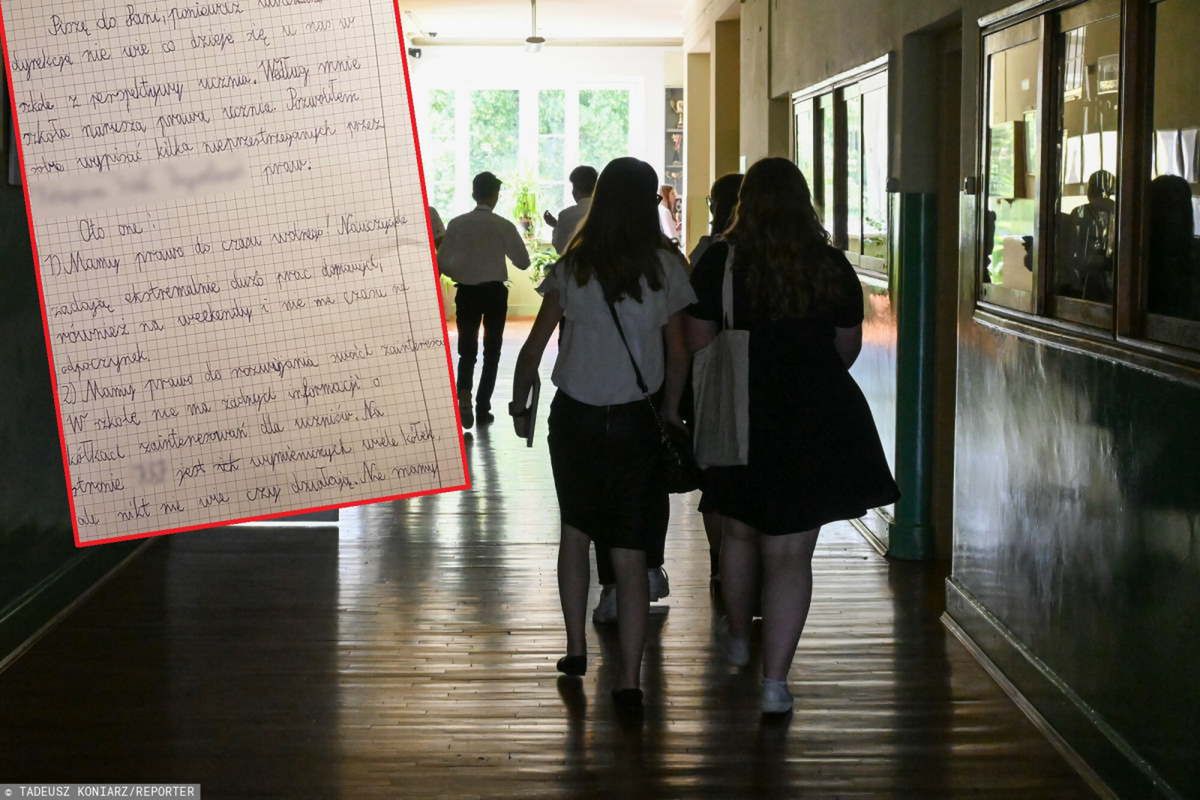 Piszę do Pani, ponieważ
dyrekcja nie wie co dzieje się u nas w
szkole z perspektywy ucznia. Według mnie
szkoła narusza prawa ucznia. Pozwoliłem
sobie wypisać kilka nieprzestrzeganych przez
praw.
Oto one:
1) Mamy prawo do czasu wolnego! Nauczyciele
zadają ekstremalnie dużo prac domowych,
również na weekendy i nie ma czasu na
opoczynek.
2) Mamy prawo do rozwijania swoich zainteresow
W szkole nie ma żadnych informacji o
kółkach zainteresowań dla uczniów. Na
stronie jest ich wymienionych wiele kółek,
ale nikt nie wie czy działają. Nie mamy
© TADEUSZ KONIARZ/REPORTER